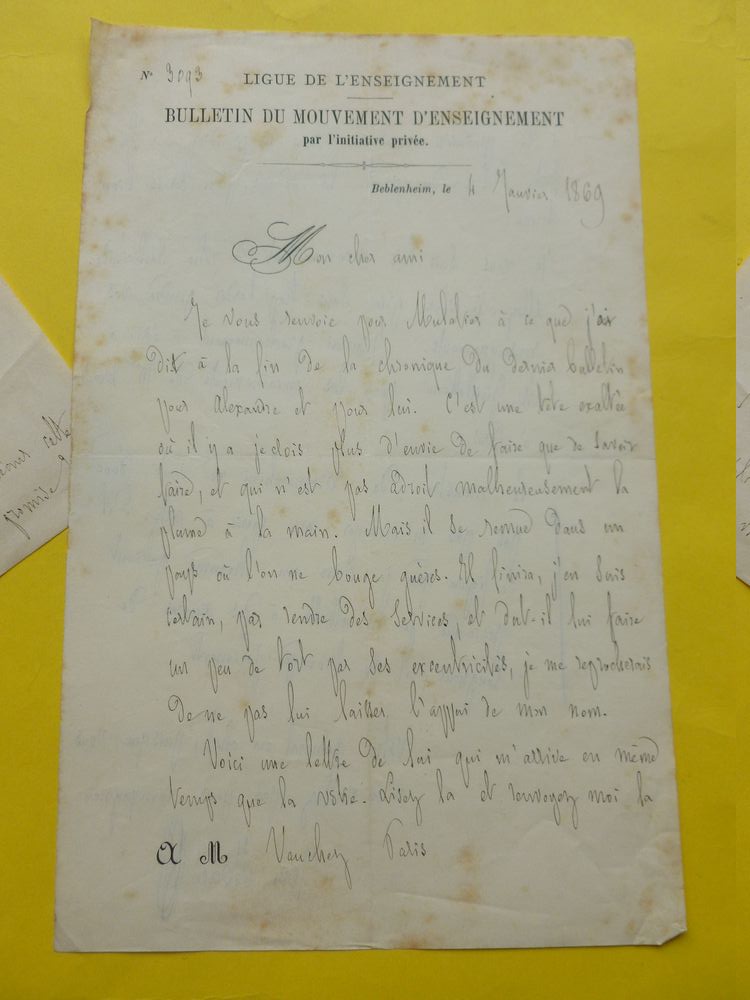 N° 3093
LIGUE DE L'ENSEIGNEMENT
BULLETIN DU MOUVEMENT D'ENSEIGNEMENT
par l'initiative privée.
Beblenheim, le 4 Janvier 1869
Mon cher ami
Je vous renvoie pour à ce que j'ai
dit à la fin de la chronique du dernier bulletin
pour Alexandre et pour lui. C'est une tête exaltée
où il y a je crois plus d'envie de faire que de savoir
faire, et qui n'est pas adroit malheureusement la
plume à la main. Mais il se remue dans un
pays où l'on ne bouge guères. Il finira, j'en suis
certain, par rendre des services, et dut-il lui faire
un peu de tort par ses excentricités, je me reprocherais
de ne pas lui laisser l'appui de mon nom.
Voici une lettre de lui qui m'arrive en même
temps que la vôtre. Lisez la et renvoyez moi la
A M Vauchez Paris
cette